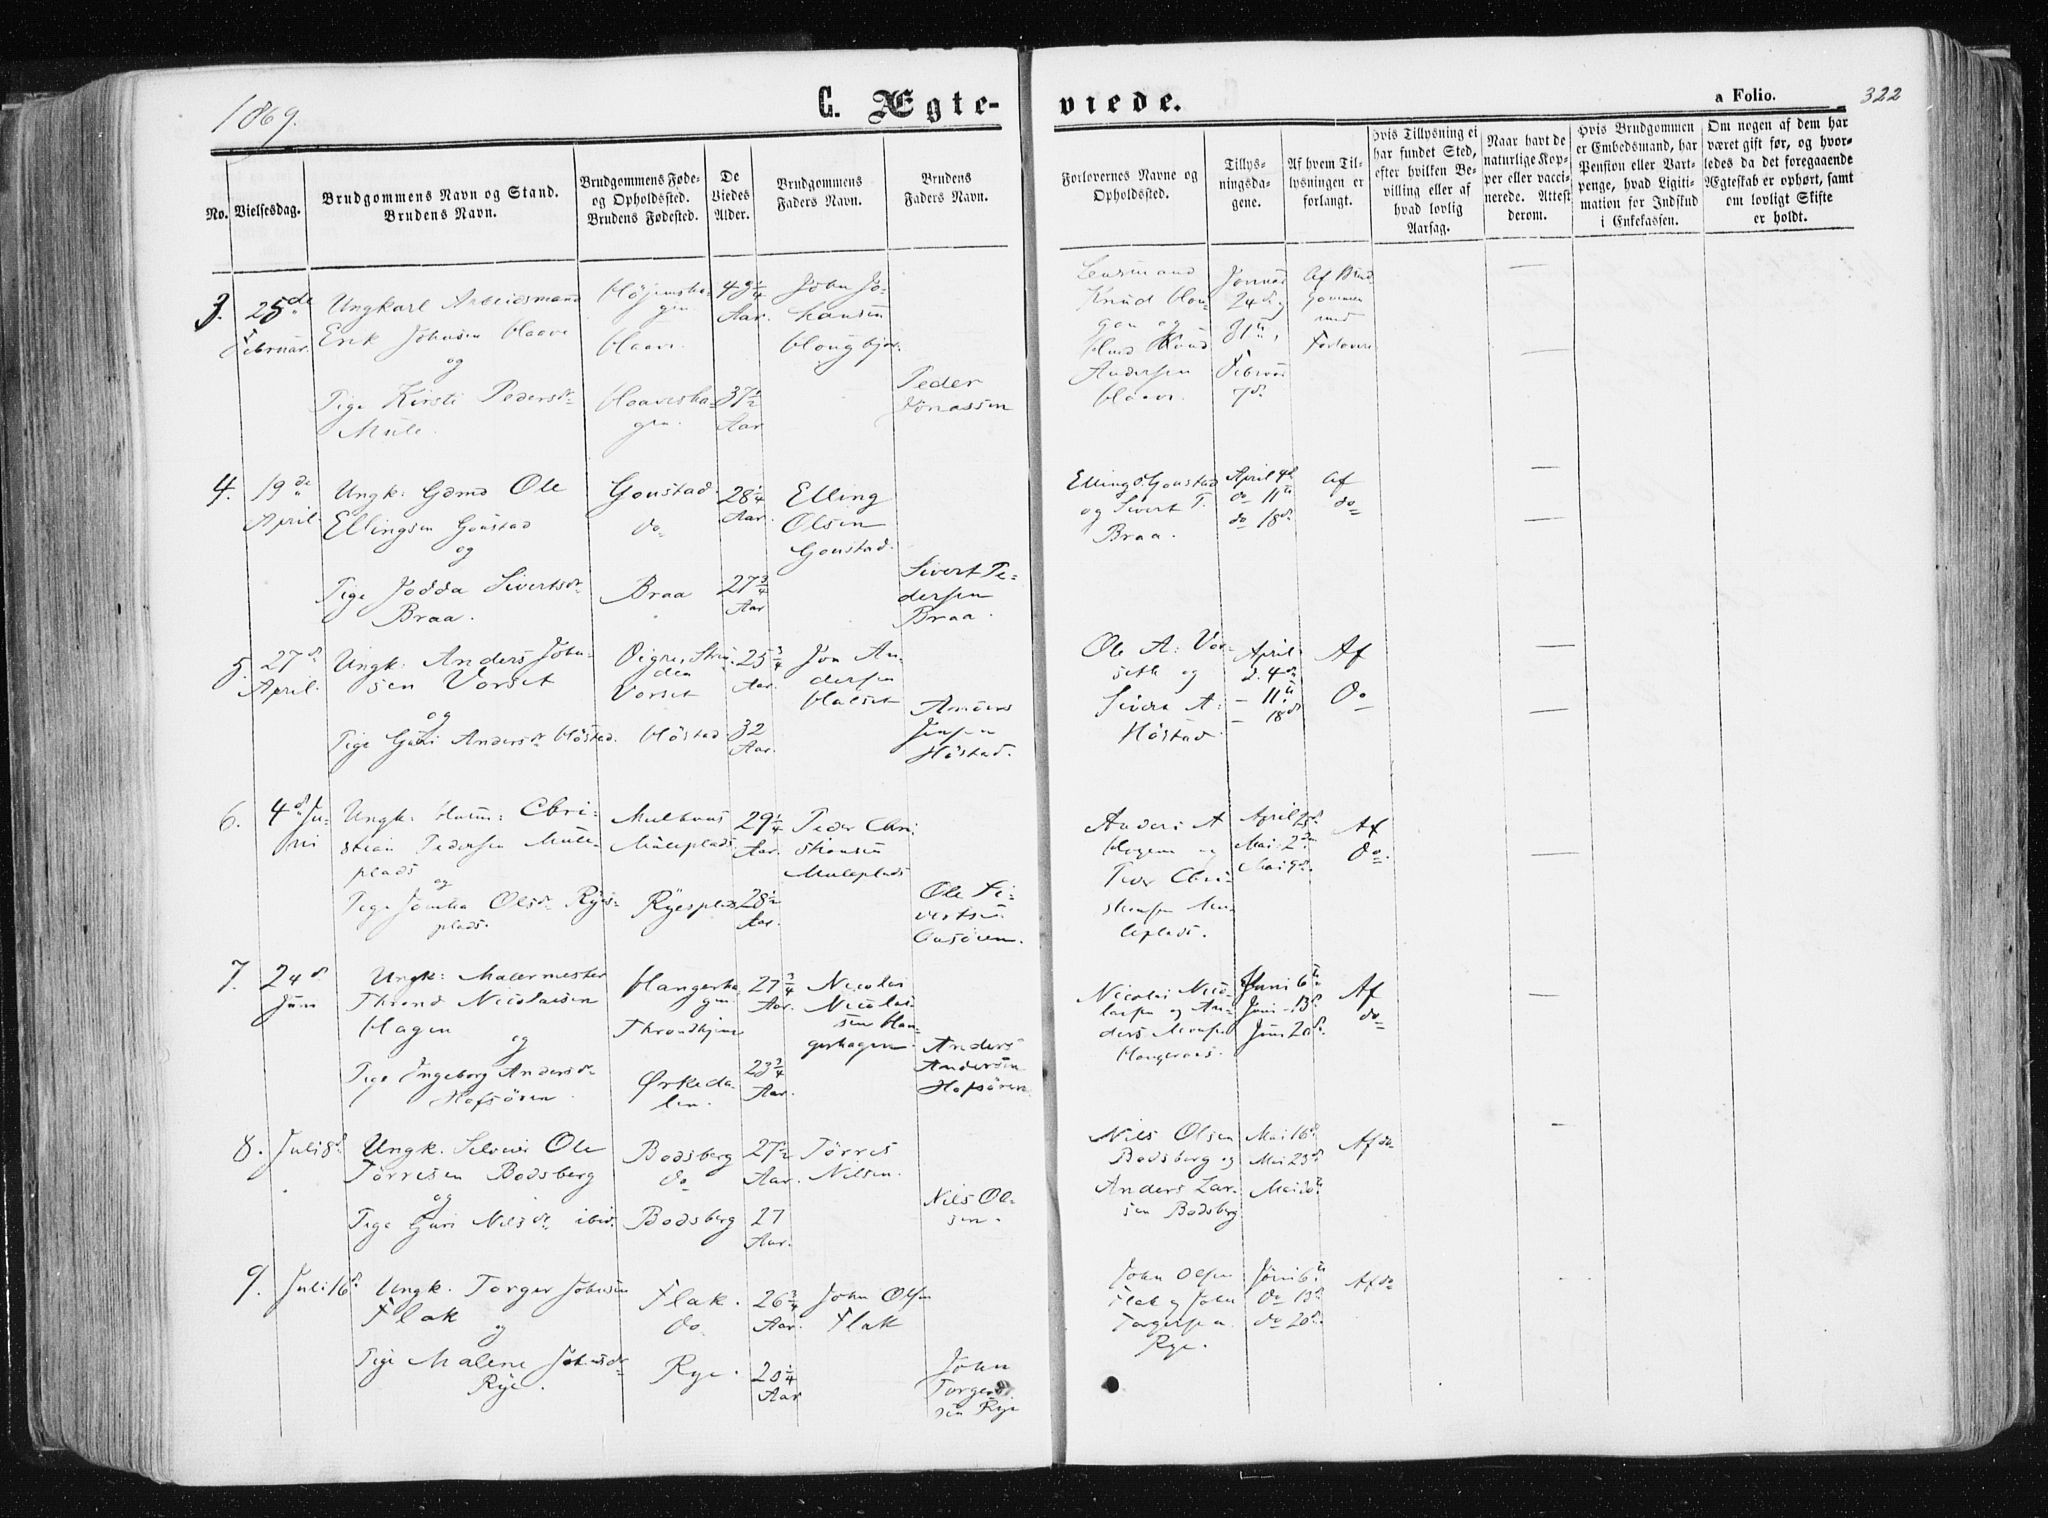 1869.
C. Ægte-
viede.
a Folio.
322
No.
Vielsesdag.
Brudgommens Navn og Stand.
Brudens Navn.
Brudgommens Føde-
og Opholdssted.
Brudens Fødested.
De
Viedes
Alder.
Brudgommens
Faders Navn.
Brudens
Faders Navn.
Forlovernes Navne og
Opholdssted.
Tillys-
ningsda-
gene.
Af hvem Til-
lysningen er
forlangt.
Hvis Tillysning ei
har fundet Sted,
efter hvilken Be-
villing eller af
hvad lovlig
Aarsag.
Naar havt de
naturlige Kop-
per eller vacci-
nerede. Attest
derom.
Hvis Brudgommen
er Embedsmand, har
Pension eller Vart-
penge, hvad Ligiti-
mation for Indskud
i Enkekassen.
Om nogen af dem har
været gift før, og hvor-
ledes da det foregaaende
Ægteskab er ophørt, samt
om lovligt Skifte
er holdt.
3.
25de
Februar.
Ungkarl Arbeidsmand
Erik Johnsen Haave
og
Pige Kirsti Pedersd.
Mule.
Haave.
Haavesha-
gen.
43 1/4
Aar.
37 1/2
Aar
John Jo-
hansen
Peder
Jonassen
Lensmand
Knud Hou-
gen og
Knud
Andersen
Haave.
Januar
24d
31te,
Februar
7d.
Af Brud
gommen
med
Forlovere
4.
19de
April.
Ungk: Gdmd Ole
Ellingsen Goustad
og
Pige Jodda Sivertsd.
Braa.
Goustad.
do
Braa
28 1/4
Aar.
27 3/4
Aar
Elling
Olsen
Goustad.
Sivert Pe-
dersen
Braa.
Elling O. Goustad
og Sivert P.
Braa.
April 4d
do 11te
do 18d.
Af
do
5.
27d
April.
Ungk: Anders John-
sen Vorset
og
Pige Guri Andersd. Høstad.
Oigre, Strin-
den
Vorset
Høstad
25 3/4
Aar.
32
Aar.
Jon An-
dersen
Halset
Anders
Jensen
Høstad.
Ole A: Vor-
seth og
Sivert A:
Høstad.
April.
d. 4d
- 11te
- 18d
Af
Do
6.
4d Ju-
ni
Ungk: Huusm: Chri-
stian Pedersen Mule-
plads
og
Pige Olsd. Ryes-
plads.
Melhuus
Muleplads
Ryesplads
29 1/4
Aar.
28 1/2
Aar.
Peder Chri
stiansen
Muleplads
Ole Si-
vertsen
Anders A
og
Peder Chri-
stiansen Mu-
leplads.
April 25d.
Mai 2den
Mai 9d.
Af
Do.
7.
24d
Juni
Ungk: Malermester
Thrond Nicolaisen
Hagen
og
Pige Ingeborg Andersd.
Hofsøren.
Hangerha-
gen
Throndhjem
Ørkeda-
len.
27 3/4
Aar.
23 3/4
Aar.
Nicolai
Nicolai-
sen Han-
gerhagen.
Anders
Andersen
Hofsøren.
Nicolai Nico-
laisen og An-
ders Monsen
Hangeraas.
Juni 6te
Juni 13d.
Juni 20d.
Af
do
8.
Juli 8d.
Ungk. Selveier Ole
Tørresen Bodsberg
og
Pige Guri Nilsd. ibid.
Bodsberg
do
Bodsberg
27 1/2
Aar.
27
Aar.
Tørres
Nilsen.
Nils Ol-
sen.
Nils Olsen
Bodsberg og
Anders Lar-
sen Bodsberg.
Mai 16d
Mai 23d.
Mai 30te
Af do
9.
Juli 16d.
Ungk. Torger Johnsen
Flak
og
Pige Malene Johnsd.
Rye.
Flak.
do
Rye.
26 3/4
Aar.
20 1/4
Aar
John Olsen
Flak
John
Torger-
sen Rye
John Olsen
Flak og John
Torgersen
Rye.
Juni 6te
do 13d.
do 20d.
Af do